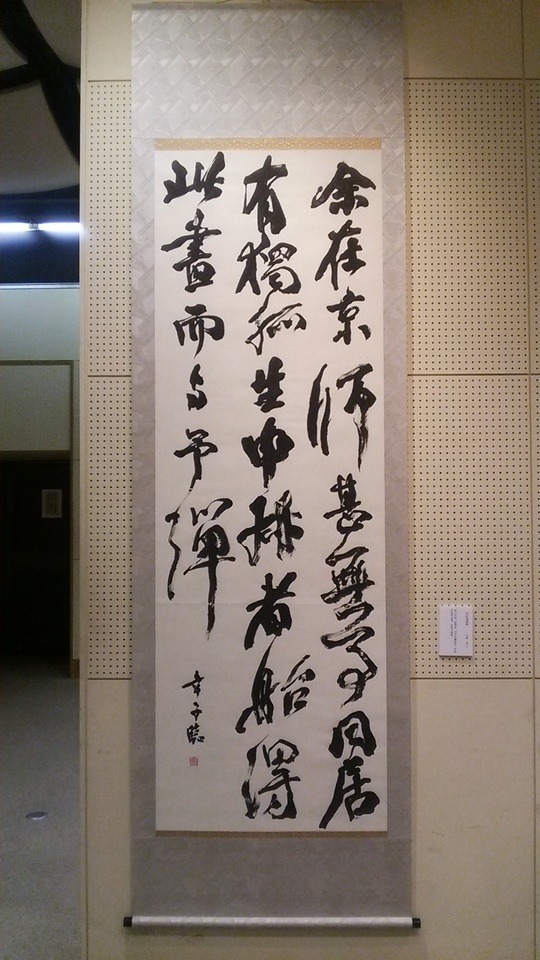 余在京師甚無事同居
有獨孤生申叔者始得
此畫而与予彈
幸子臨